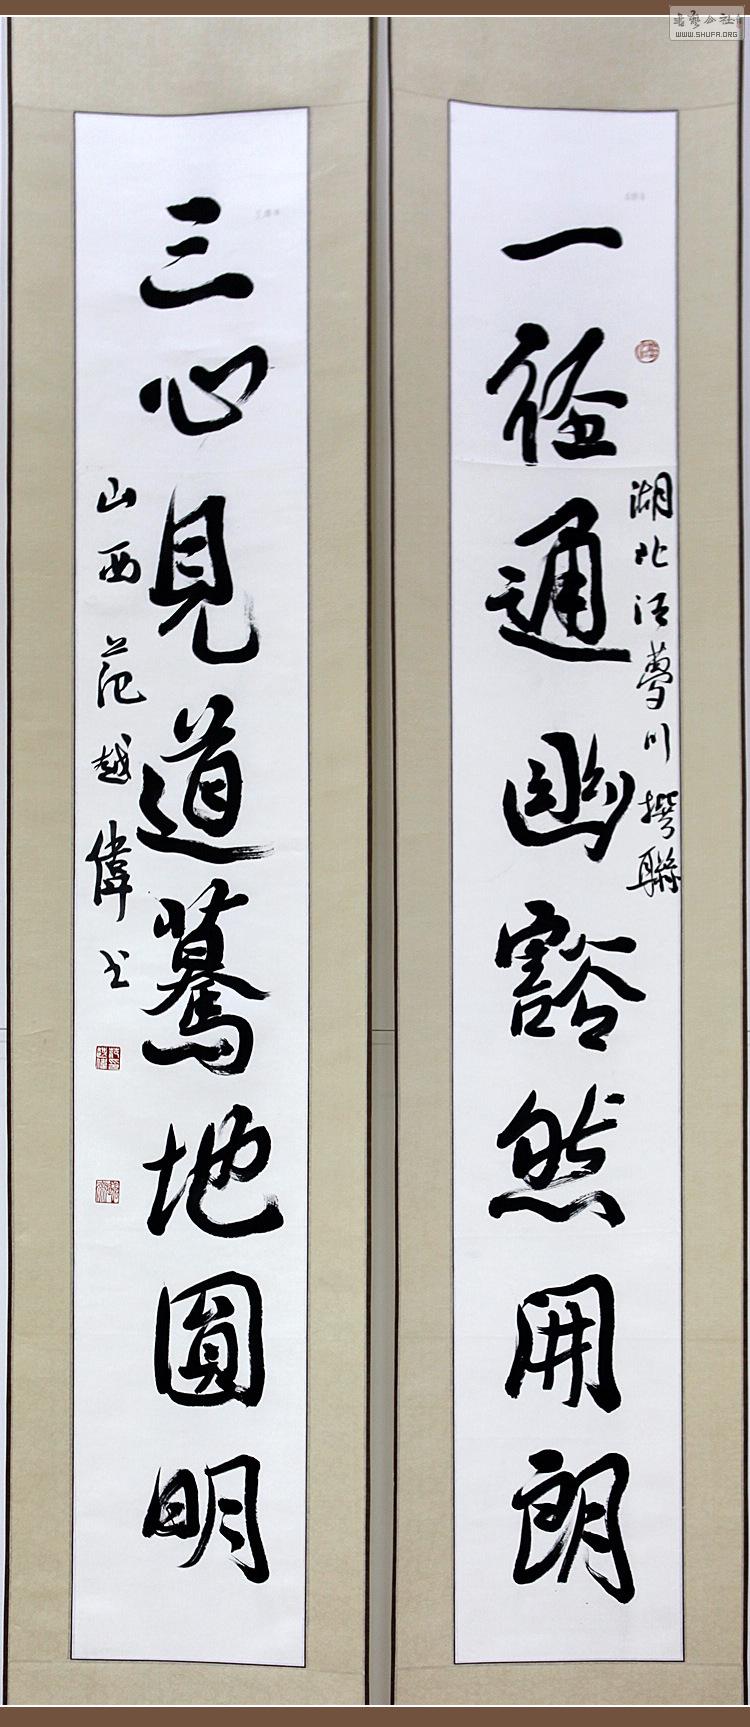 一徑通幽豁然開朗
湖北汪夢川撰聯
三心見道驀地圓明
山西范越偉書
书艺公社
WWW.SHUFA.ORG